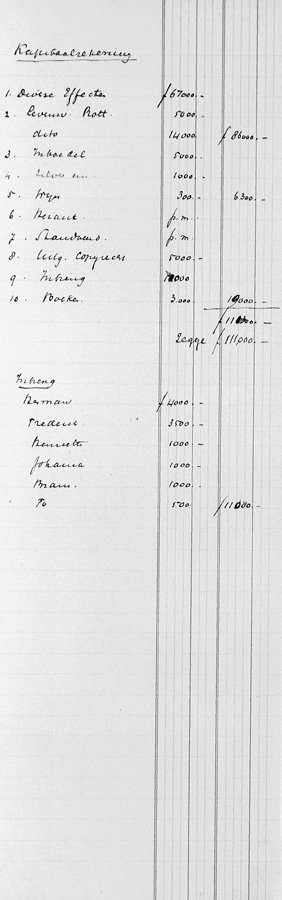 Kapitaalrekening
1. Diverse Effecten f 67000.-
2. Levensv. Rott. 5000.-
dito 14000. f 86000.-
3. Inboedel 5000.-
4. Zilver en 1000.-
5. Wijn 300.- 6300.-
6. p.m.
7. p.m.
8. Uitg. Copyrecht 5000.-
9 Inbreng 11000
10. Boeken 3.000. 19000.-
f 111000.-
Zegge f 111,000.-
Inbreng
Herman f 4000.-
Frederik 3500.-
Henriette 1000.-
Johanna 1000.-
Bram. 1000.-
To 500.- f 11000.-